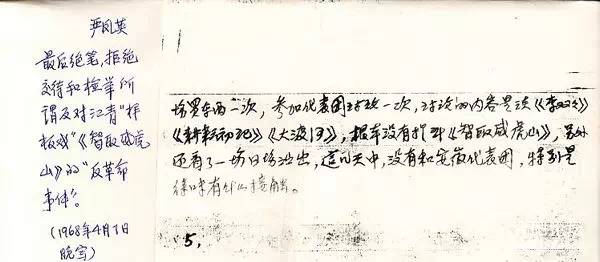 严凤英
最后绝笔,拒绝
交待和检举所
谓反对江青"样
板戏"《智取威虎
山》的"反革命
事件"。
(1968年4月7日
晚写)
买东西二次,参加代表团讨论一次,讨论的内容是谈《李双双》
《》《大渡河》,根本没有提到《智取威虎山》,另外
还看了一场日场演出,这几天中,没有和安徽代表团,特别是
有什么接触。
5,